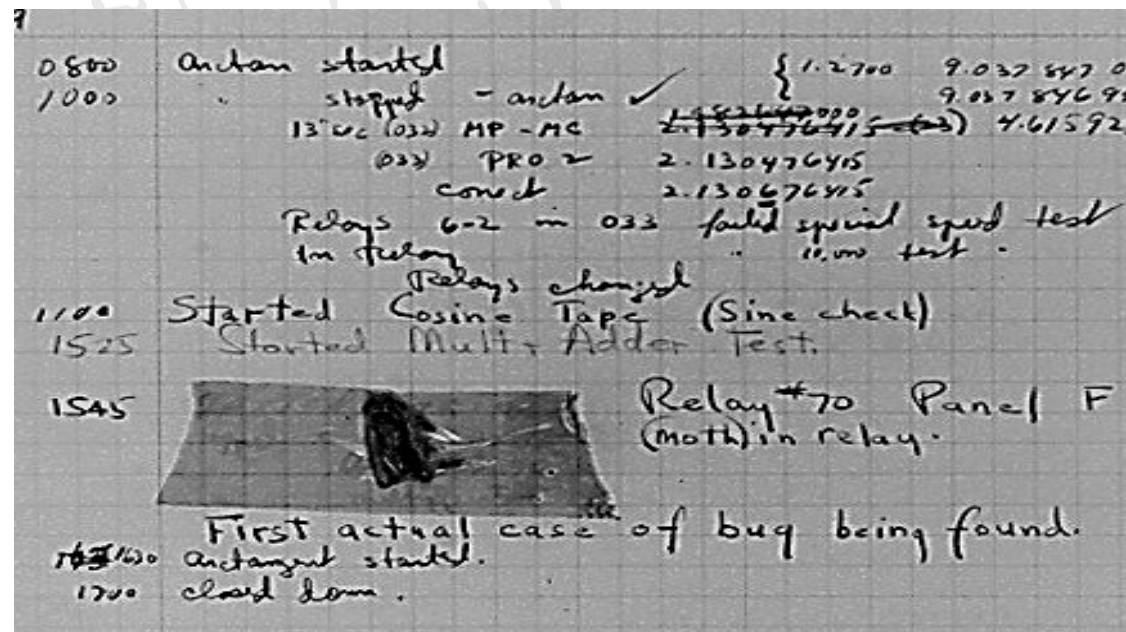 9
0800 Antan started { 1.2700 9.037 847 0
1000 " stopped - antan ✓ 9.037 846 95
13" uc (032) MP - MC 1.982647000 2.130476415 (-3) 4.61592
(033) PRO 2 2.130476415
conect 2.130676415
Relays 6-2 in 033 failed special speed test
In Relay " 10.000 test .
Relays changed
1100 Started Cosine Tape (Sine check)
1525 Started Mult + Adder Test.
1545 Relay #70 Panel F
(Moth) in relay.
First actual case of bug being found.
1630 antangent started.
1700 closed down.